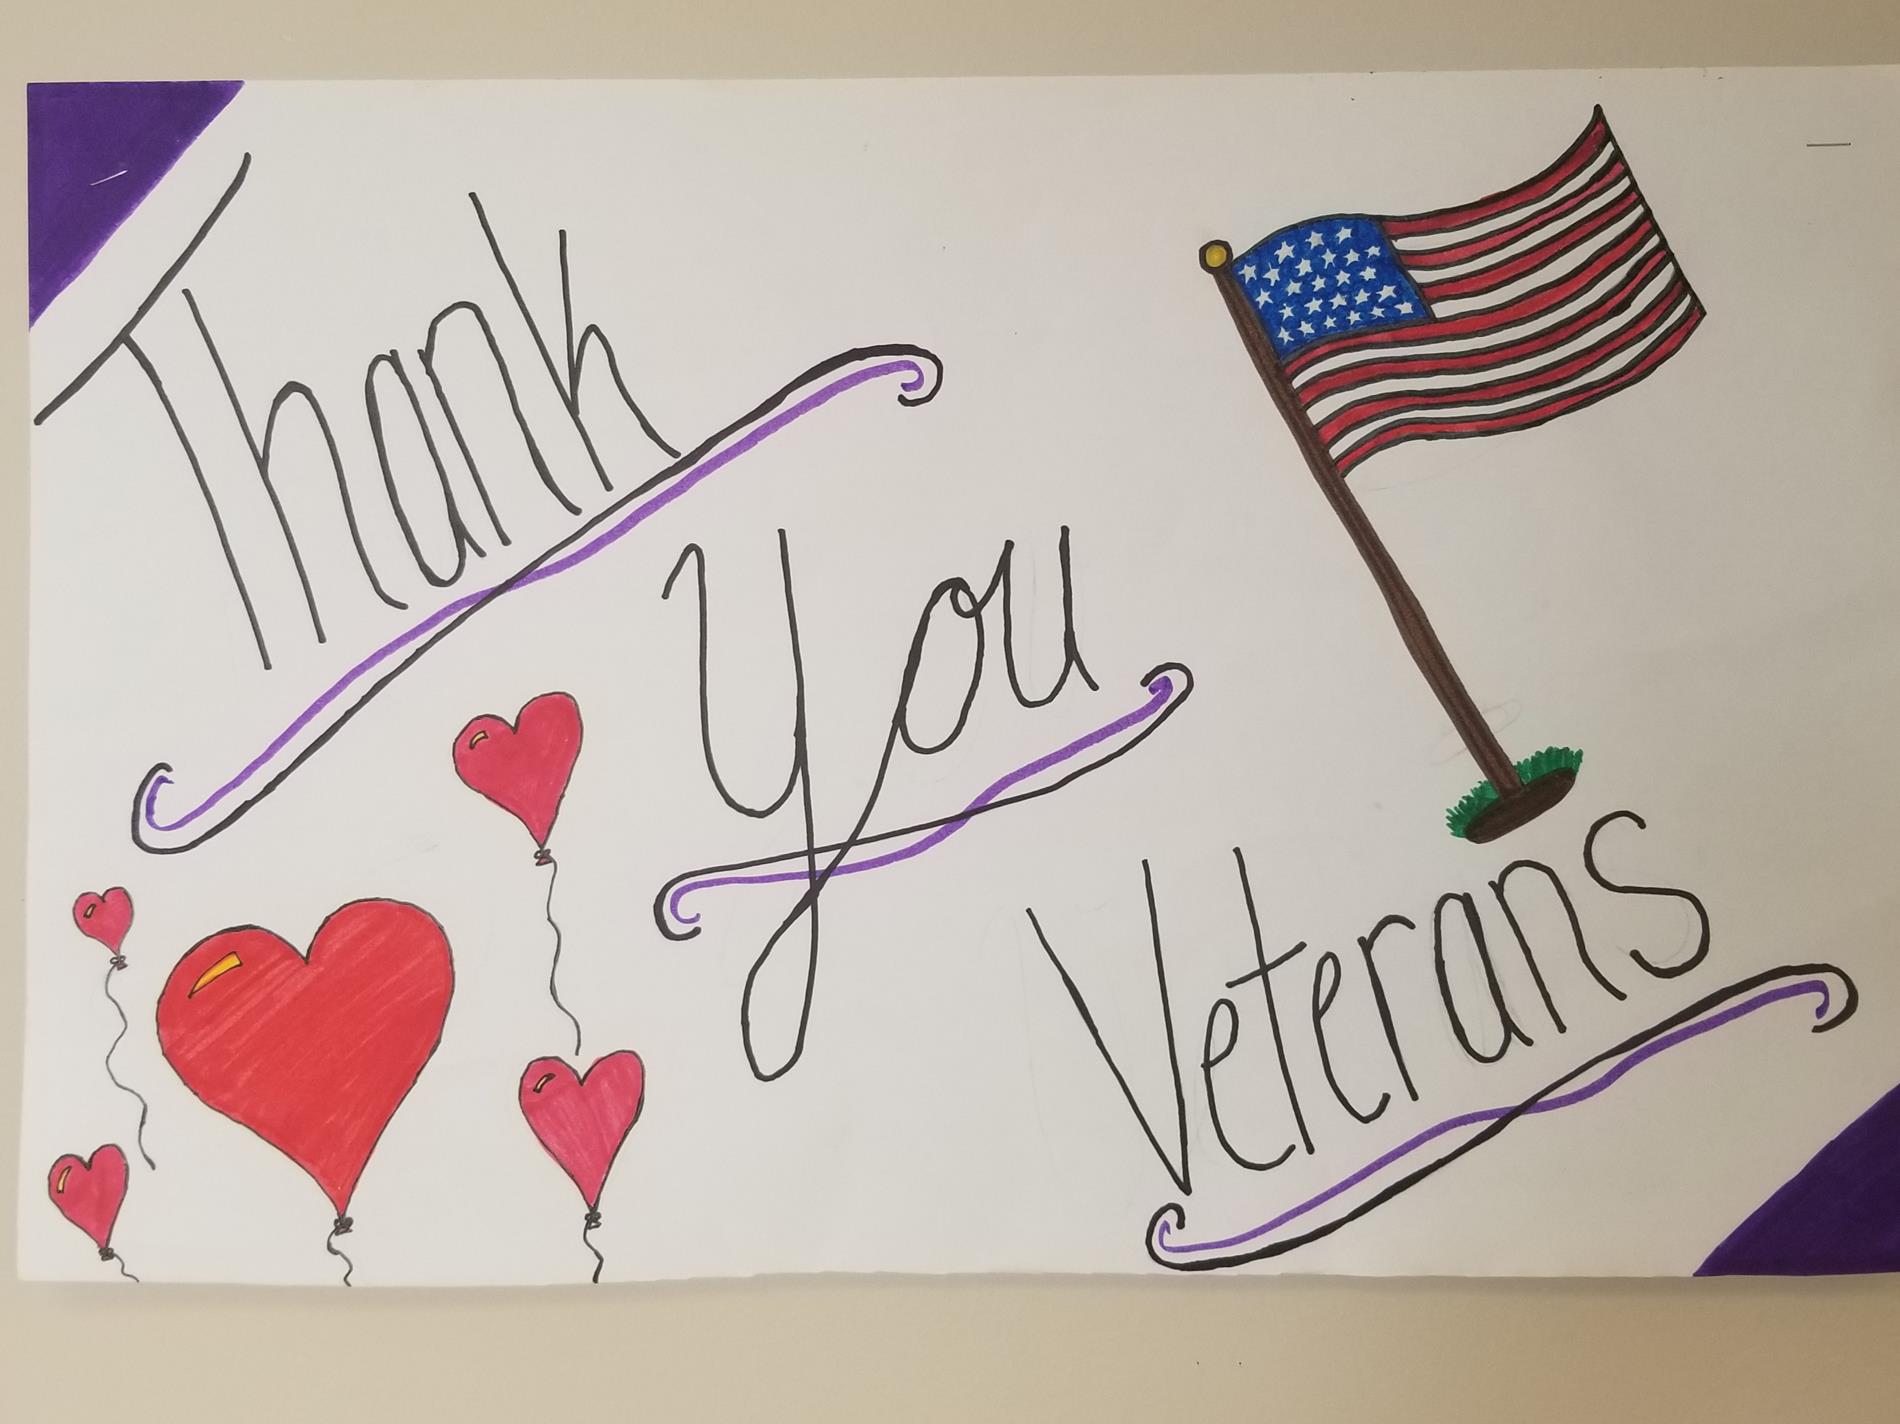 Thank
You
Veterans